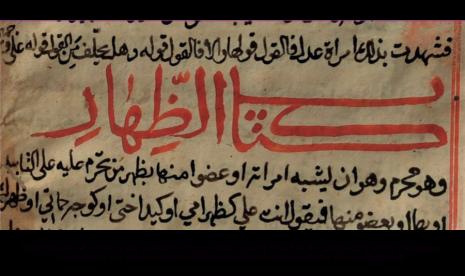 فشهدت بذلك امراة عدل فالقول قولها والا فالقول قوله وهل يحلف من القول قوله على
كتاب الظِّهَارِ
وهو محرم وهو ان يشبه امراته او عضوا منها بظهر من تحرم عليه على التابيد
او بها او بعضو منها فيقول انت علي كظهر امي او كيد اختي او كوجه حماتي او ظهرك